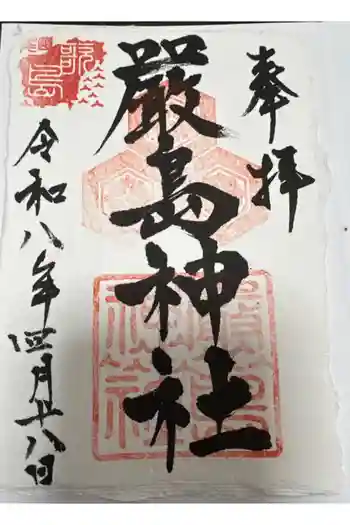 奉拝
厳島神社
令和八年四月廿八日